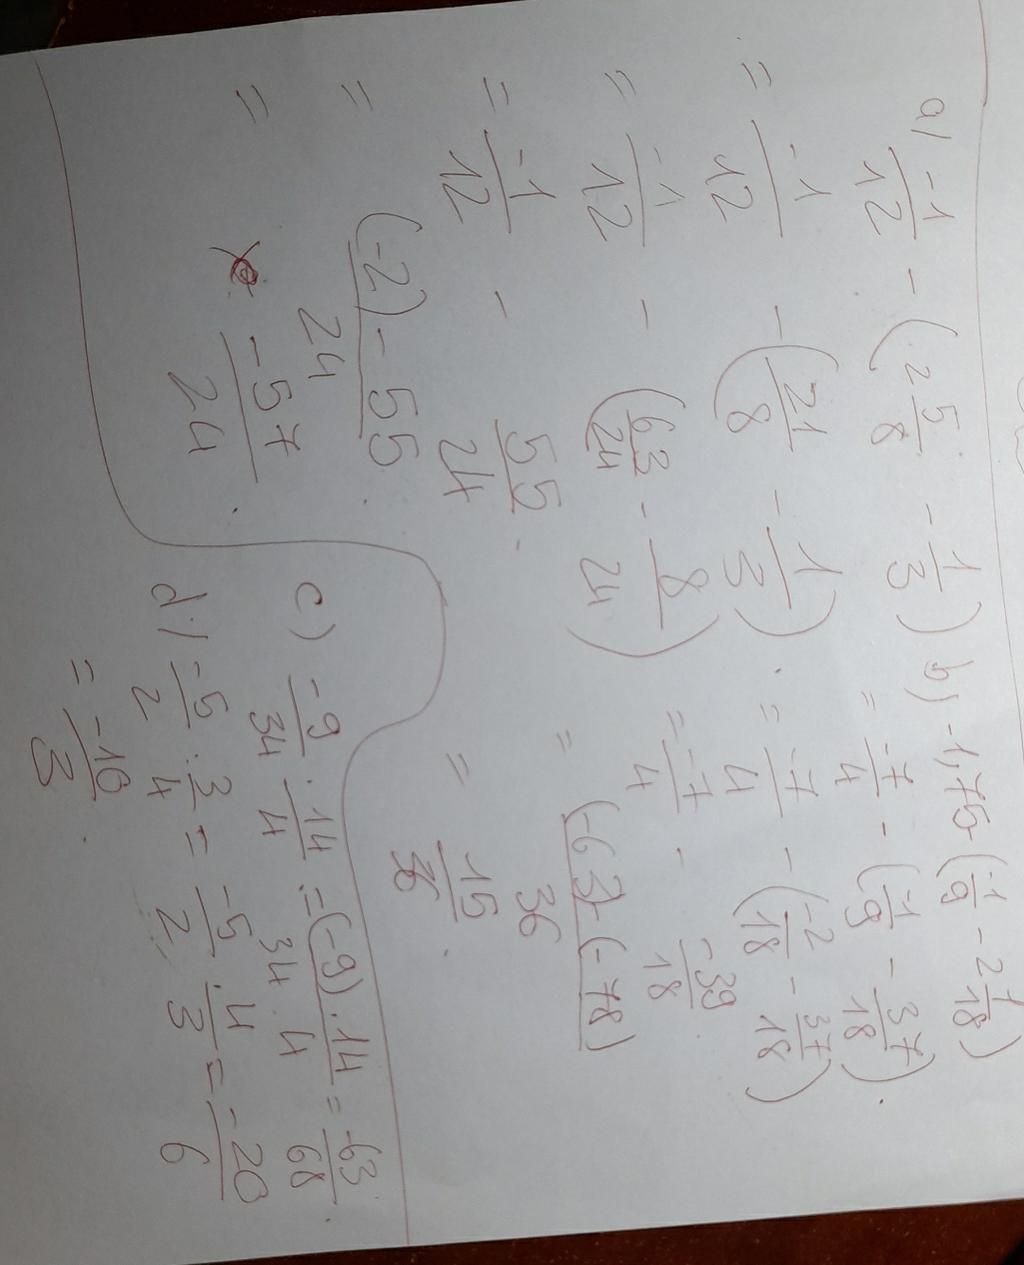 a) -1/12 - (2 5/8 - 1/3)
= -1/12 - (21/8 - 1/3)
= -1/12 - (63/24 - 8/24)
= -1/12 - 55/24.
= (-2) - 55/24.
= -57/24.
b) -1,75 - (-1/9 - 2 1/18)
= -7/4 - (-1/9 - 37/18).
= -7/4 - (-2/18 - 37/18)
= -7/4 - -39/18
= (-63) - (-78)/36
= 15/36.
c) -9/34 . 14/4 = (-9) . 14/34 . 4 = -63/68.
d) -5/2 : 3/4 = -5/2 . 4/3 = -20/6
= -10/3.